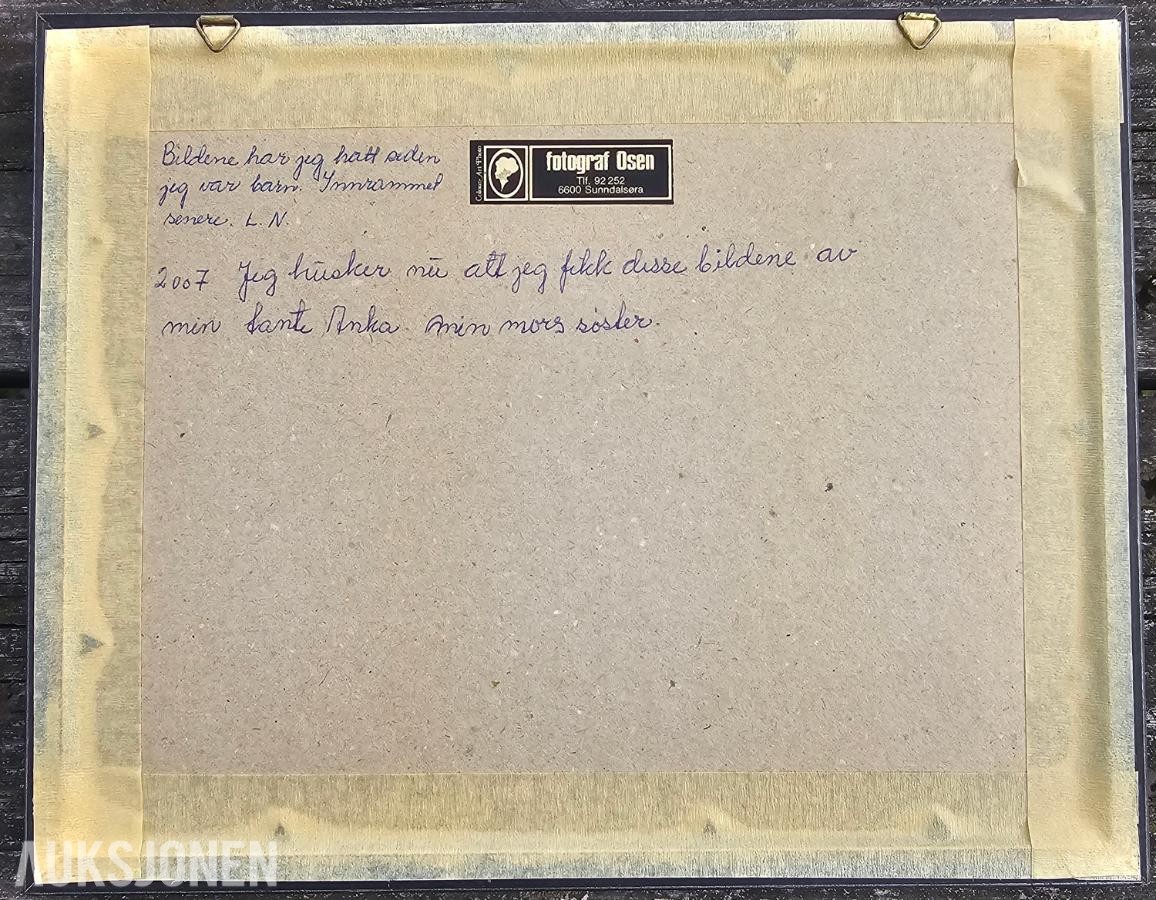 Bildene har jeg hatt siden
jeg var barn. Innrammet
senere. L. N.
Colour Art Photo
fotograf Osen
Tlf. 92 252
6600 Sunndalsøra
2007 Jeg husker nu att jeg fikk disse bildene av
min tante Anka. min mors søster.
AUKSJONEN